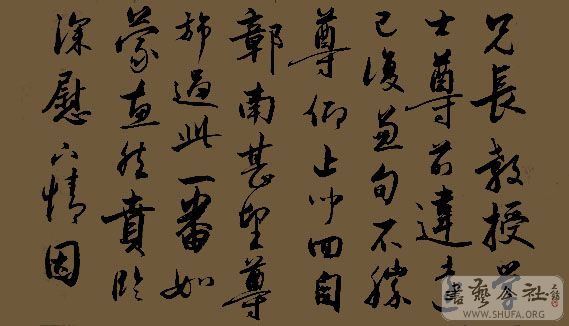 兄長教授學
士尊前違遠
已復兼旬不勝
尊仰止四自
鄣南甚望尊
旆過此一番如
蒙惠然賁臨
深慰下情因
書藝公社
WWW.SHUFA.ORG